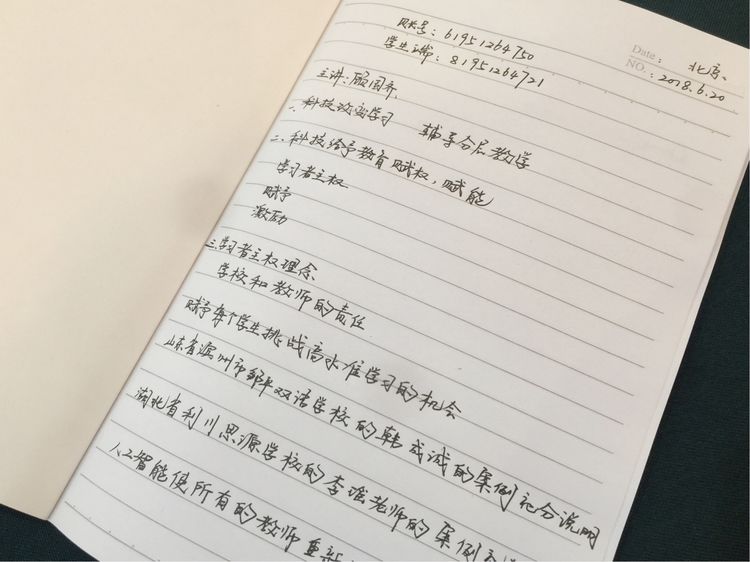 账号：61951264750
学生证号：81951264721
Date：北京、
NO.：2018.6.20
主讲：顾国齐.
一、科技改变学习 辅导分层教学
二、科技给予教育赋权，赋能
学习者主权
赋予
激励
三、学习者主权理念
学校和教师的责任
赋予每个学生挑战高水准学习的机会
山东省滨州市邹平双语学校的韩成诚的案例充分说明
湖北省利川思源学校的李瑶老师的案例充
人工智能使所有的教师重新